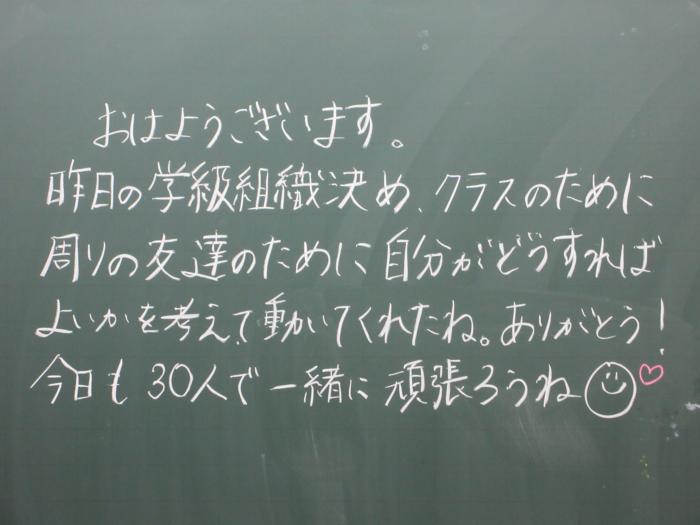 おはようございます。
昨日の学級組織決め、クラスのために
周りの友達のために自分がどうすれば
よいかを考えて、動いてくれたね。ありがとう！
今日も30人で一緒に頑張ろうね